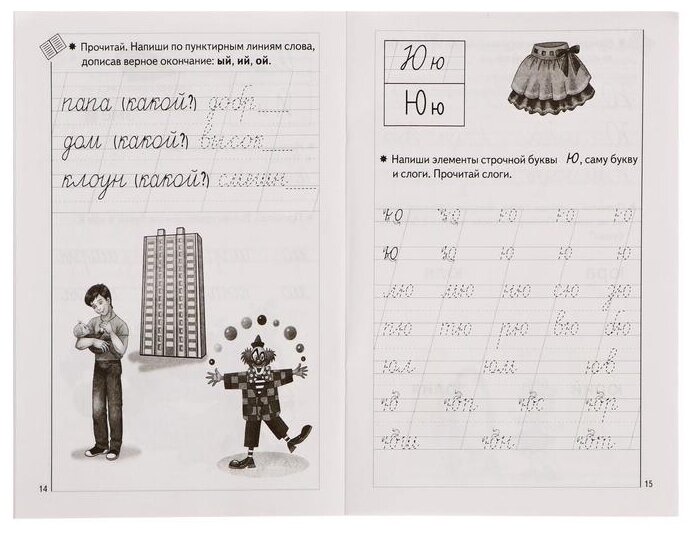 Прочитай. Напиши по пунктирным линиям слова,
дописав верное окончание: ый, ий, ой.
папа (какой?) добр
дом (какой?) высок
клоун (какой?) смешн
14
Ю ю
Ю ю
Напиши элементы строчной буквы Ю, саму букву
и слоги. Прочитай слоги.
ю ю ю ю ю ю
ю ю ю ю ю ю
лю мю ню сю дю
пю тю рю вю бю
юл юм юв
юн юс юр
юш юн ют
15